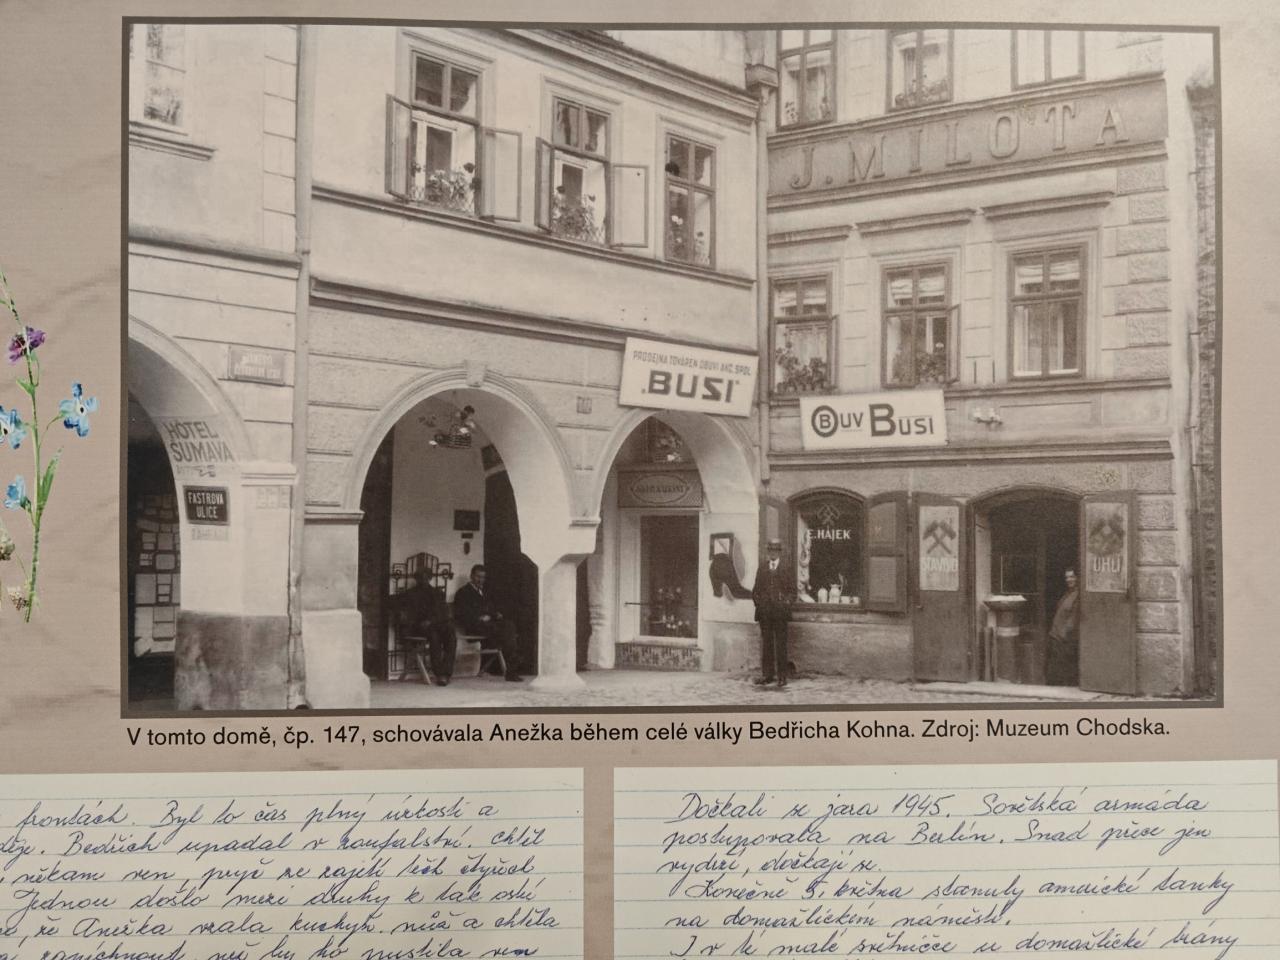 J. MILOTA
PRODEJNA TOVÁREN OBUVI AKC. SPOL.
„BUSI“
OBUV BUSI
HÔTEL
ŠUMAVA
FASTROVA
ULICE
E. HÁJEK
STAVIVO
UHLÍ
V tomto domě, čp. 147, schovávala Anežka během celé války Bedřicha Kohna. Zdroj: Muzeum Chodska.
frontách. Byl to čas plný úzkosti a
Bedřich upadal v zoufalství. Chtěl
někam ven, pryč ze zajetí těch čtyřech
Jednou došlo mezi druhy k tak ostré
že Anežka vzala kuchyň. nůž a chtěla
než by ho pustila ven
Dočkali se jara 1945. Sovětská armáda
postupovala na Berlín. Snad přece jen
vydrží, dočkají se.
Konečně 5. května stanuly americké tanky
na domažlickém náměstí.
I v té malé světničce u domažlické brány